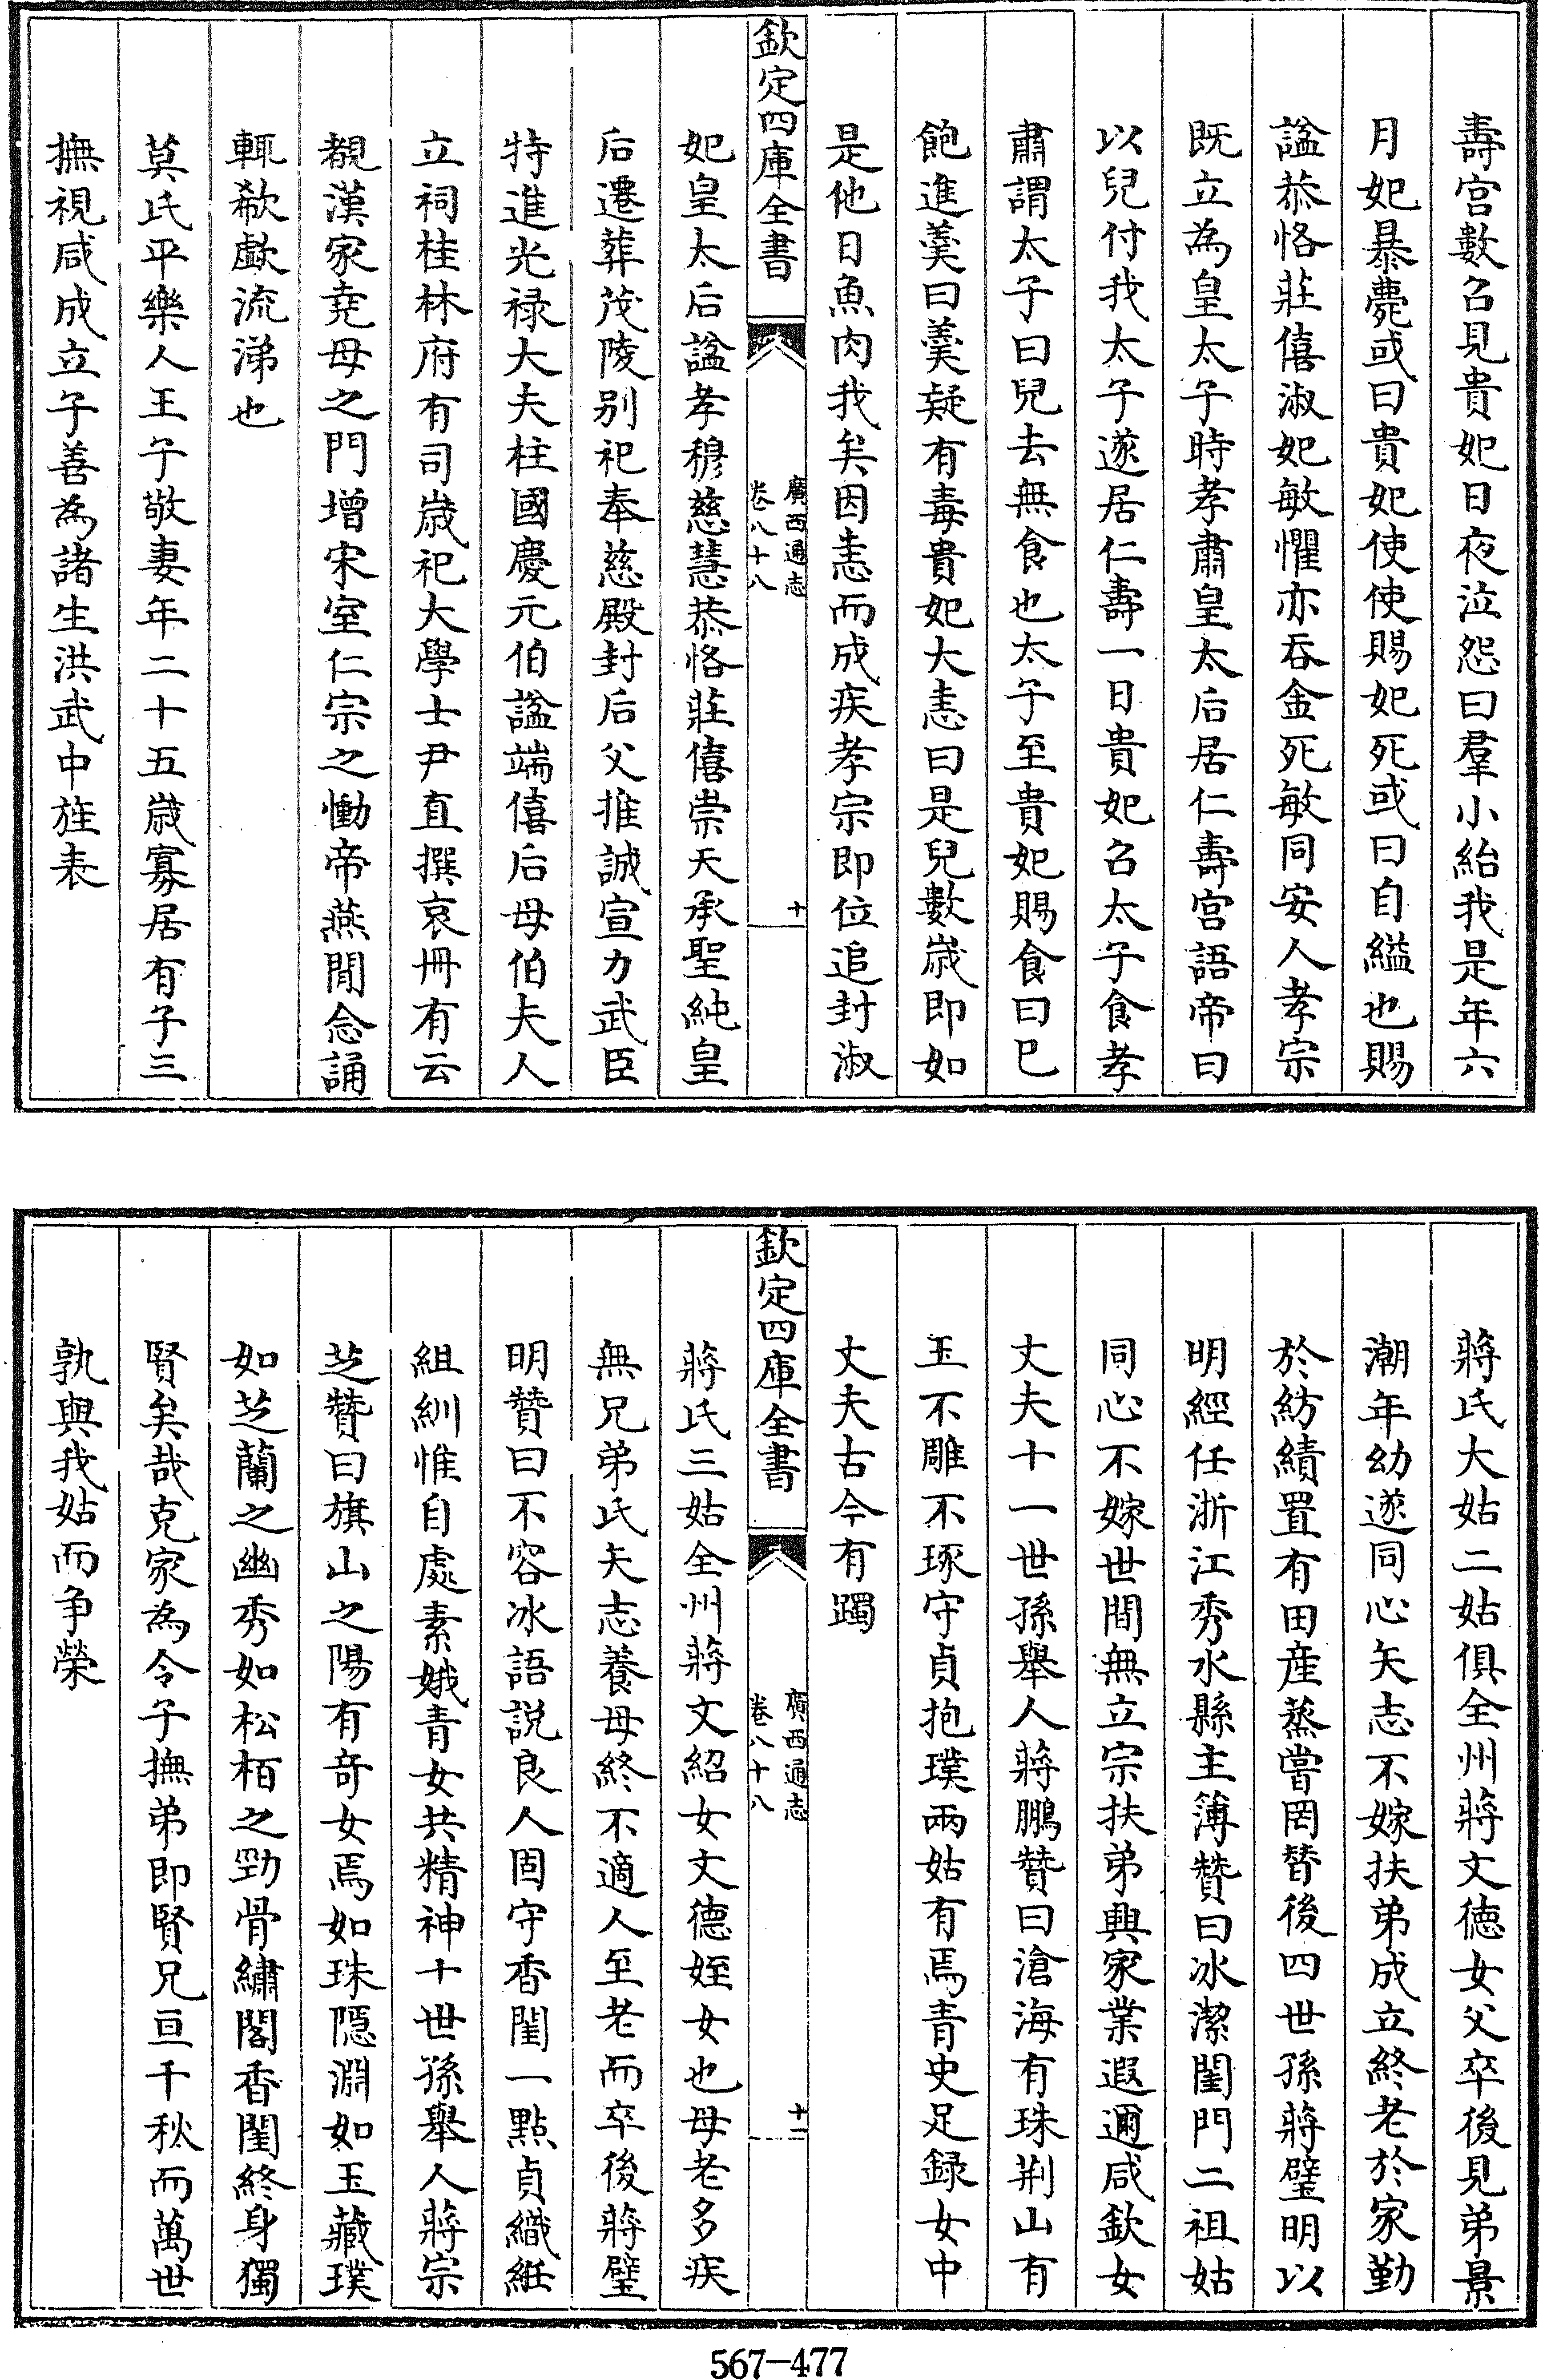 壽宫數召見貴妃日夜泣怨曰羣小紿我是年六
月妃暴薨或曰貴妃使使賜妃死或曰自縊也賜
諡恭恪莊僖淑妃敏懼亦吞金死敏同安人孝宗
既立為皇太子時孝肅皇太后居仁壽宫語帝曰
以兒付我太子遂居仁壽一日貴妃召太子食孝
肅謂太子曰兒去無食也太子至貴妃賜食曰已
飽進羹曰羹疑有毒貴妃大恚曰是兒數嵗即如
是他日魚肉我矣因恚而成疾孝宗即位追封淑
欽定四庫全書
廣西通志
卷八十八
十一
妃皇太后諡孝穆慈慧恭恪莊僖崇天承聖純皇
后遷葬茂陵别祀奉慈殿封后父推誠宣力武臣
特進光禄大夫柱國慶元伯諡端僖后母伯夫人
立祠桂林府有司嵗祀大學士尹直撰哀冊有云
覩漢家堯母之門增宋室仁宗之慟帝燕閒念誦
輒欷歔流涕也
莫氏平樂人王子敬妻年二十五嵗寡居有子三
撫視咸成立子善為諸生洪武中旌表
蔣氏大姑二姑俱全州蔣文德女父卒後見弟景
潮年幼遂同心矢志不嫁扶弟成立終老於家勤
於紡績置有田産蒸嘗罔替後四世孫蔣璧明以
明經任浙江秀水縣主簿贊曰冰潔閨門二祖姑
同心不嫁世間無立宗扶弟興家業遐邇咸欽女
丈夫十一世孫舉人蔣鵬贊曰滄海有珠荆山有
玉不雕不琢守貞抱璞兩姑有焉青史足録女中
丈夫古今有躅
欽定四庫全書
廣西通志
卷八十八
十二
蔣氏三姑全州蔣文紹女文德姪女也母老多疾
無兄弟氏矢志養母終不適人至老而卒後蔣璧
明贊曰不容冰語説良人固守香閨一點貞織紝
組紃惟自處素娥青女共精神十世孫舉人蔣宗
芝贊曰旗山之陽有竒女焉如珠隠淵如玉藏璞
如芝蘭之幽秀如松栢之勁骨繡閣香閨終身獨
賢矣哉克家為令子撫弟即賢兄亘千秋而萬世
孰與我姑而争榮
567-477